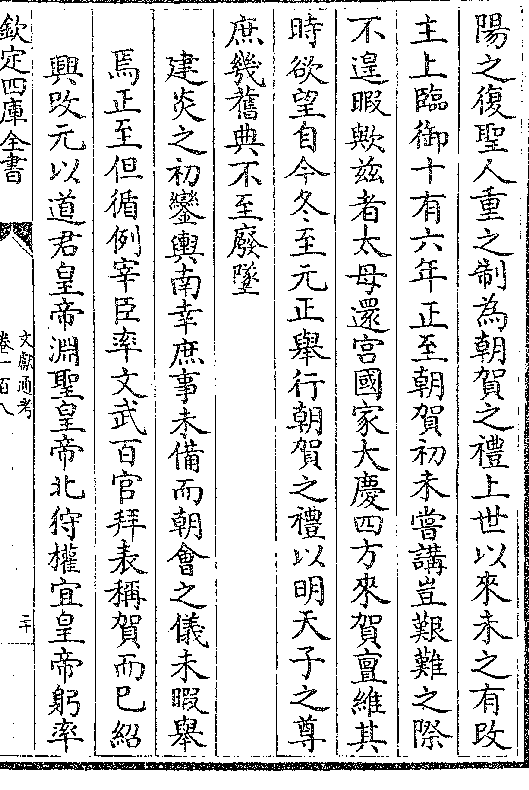 陽之復聖人重之制為朝賀之禮上世以來未之有改
主上臨御十有六年正至朝賀初未嘗講豈艱難之際
不遑暇歟兹者太母還宫國家大慶四方來賀亶維其
時欲望自今冬至元正舉行朝賀之禮以明天子之尊
庶幾舊典不至廢墜
建炎之初鑾輿南幸庶事未備而朝會之儀未暇舉
焉正至但循例宰臣率文武百官拜表稱賀而已紹
興改元以道君皇帝淵聖皇帝北狩權宜皇帝躬率
欽定四庫全書
文獻通考
卷一百八
二十